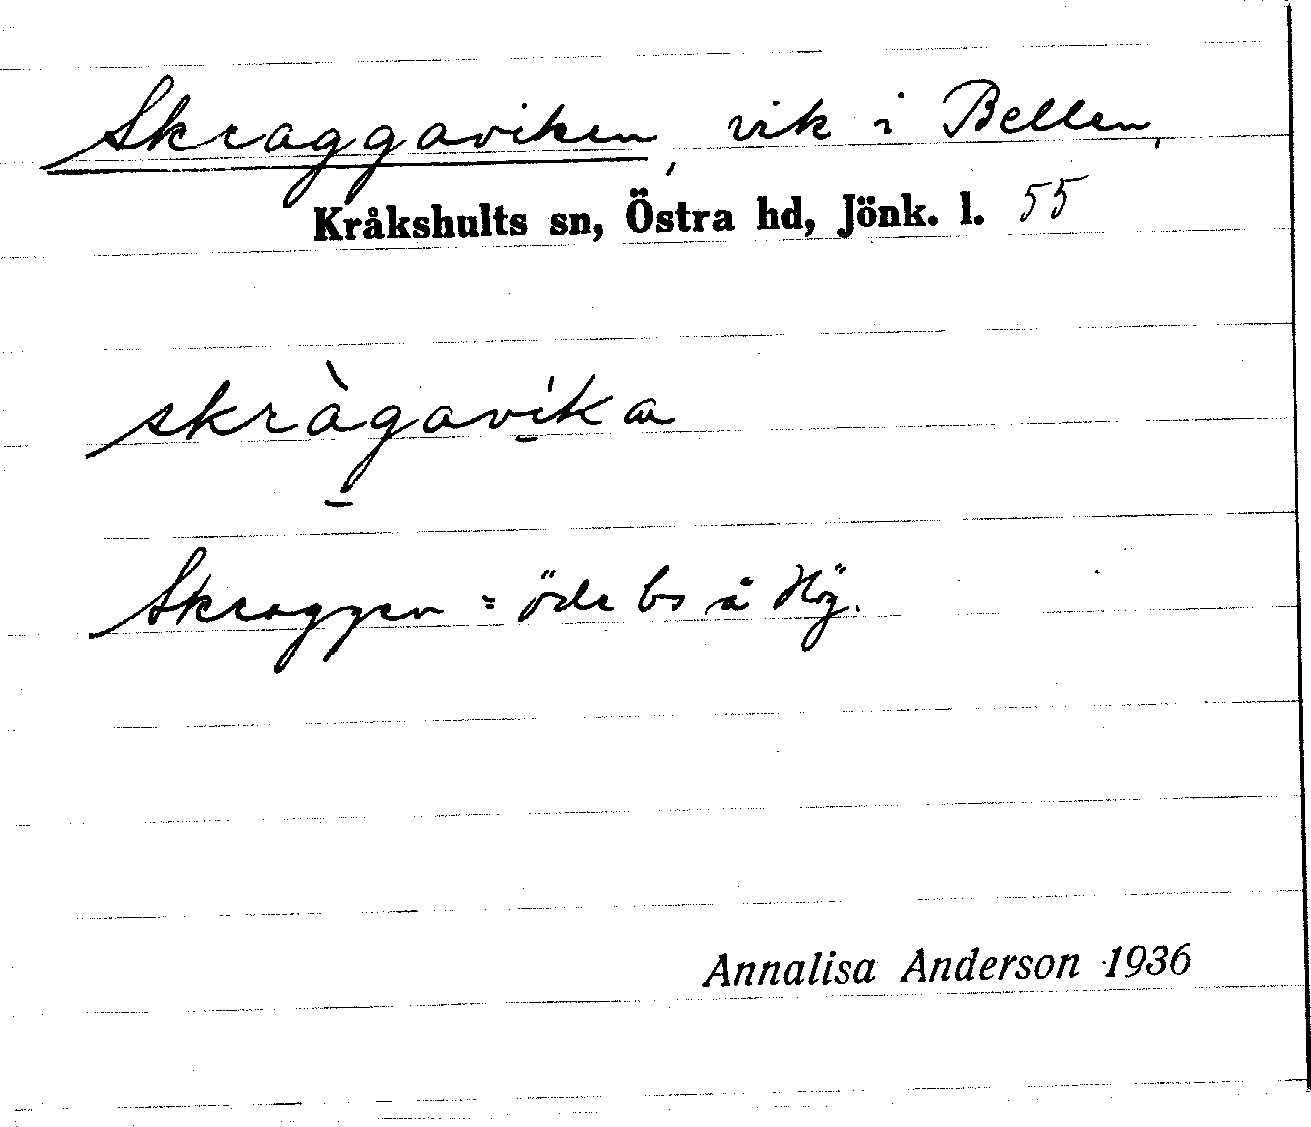 Skraggaviken, vik i Bellen,
Kråkshults sn, Östra hd, Jönk. l. 55
skràgavíka
Skraggen = öde bs å Hög.
Annalisa Anderson 1936